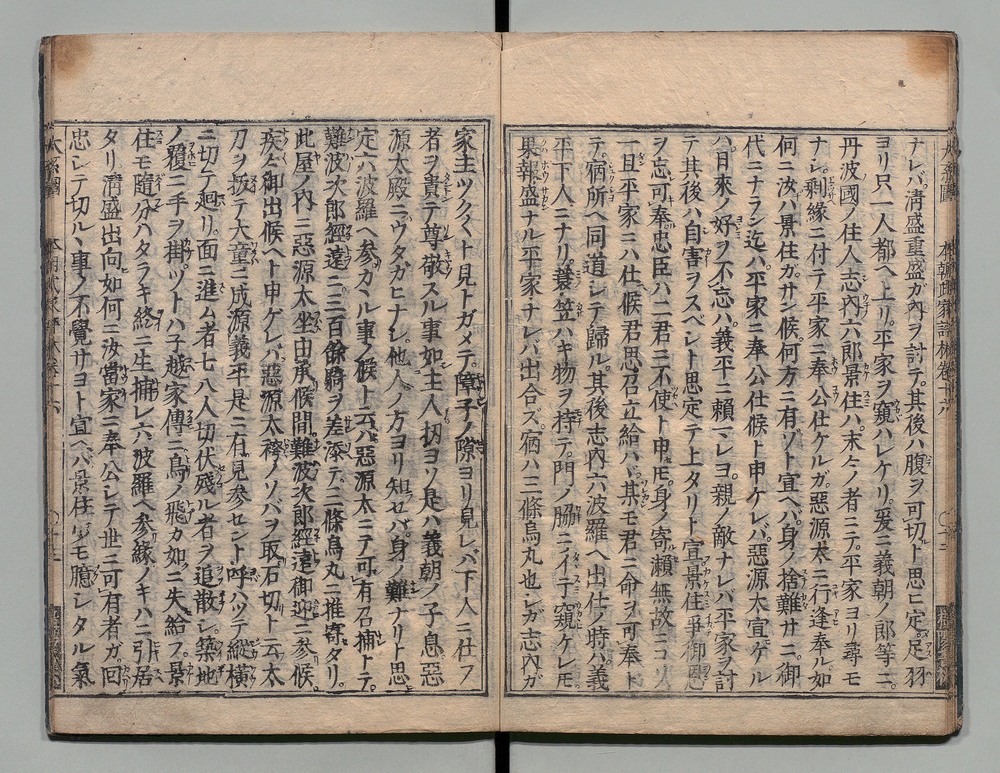 ナレバ清盛重盛ガ内ヲ討テ其後ハ腹ヲ可切ト思ヒ定足羽
ヨリ只一人都ヘ上リ平家ヲ窺ハレケリ爰ニ義朝ノ郎等ニ
丹波國ノ住人志内六郎景住ハ末々ノ者ニテ平家ヨリ尋モ
ナシ剰縁ニ付テ平家ニ奉公仕ケルガ惡源太ニ行逢奉ル如
何ニ汝ハ景住ガサン候何方ニ有ゾト宣ヘバ身ノ捨難サニ御
代ニナラン迄ハ平家ニ奉公仕候ト申ケレバ惡源太宣ゲル
ハ日來ノ好ヲ不忘ハ義平ニ賴マレヨ親ノ敵ナレバ平家ヲ討
テ其後ハ自害ヲスベシト思定テ上タリト宣景住爭御恩
ヲ忘可奉忠臣ハ二君ニ不使ト申𪜈身ノ寄瀬無故ニコソ
一旦平家ニハ仕候君思召立給ハヾ其モ君ニ命ヲ可奉ト
テ宿所ヘ同道シテ歸ル其後志内六波羅ヘ出仕ノ時ハ義
平下人ニナリ蓑笠ハキ物ヲ持テ門ノ脇ニイテ窺ケレ𪜈
果報盛ナル平家ナレバ出合ズ宿ハ三條烏丸也シガ志内ガ
家主ツク〱ト見トガメテ障子ノ隙ヨリ見レバ下人ニ仕フ
者ヲ貴テ尊敬スル事如主人扨ヨソ是ハ義朝ノ子息惡
源太殿ニウタガヒナシ他人ノ方ヨリ知セバ身ノ難ナリト思
定六波羅ヘ参カヽル事ノ候ト云ハ惡源太ニテ可有召捕トテ
難波次郎經遠ニ三百餘騎ヲ差添テ三條烏丸ニ推寄タリ
此屋ノ内ニ惡源太坐由承候間難波次郎經遠御迎ニ参候
疾々御出候ヘト申ゲレバ惡源太袴ノソバヲ取石切ト云太
刀ヲ抜テ大童ニ成源義平是ニ有見参セント呼ハツテ縦橫
ニ切テ廻リ面ニ進ム者七八人切伏殘ル者ヲ追散シ築地
ノ覆ニ手ヲ掛ヅツトハ子越家傳ニ鳥ノ飛カ如ニ失給フ景
住モ隨分ハタラキ終ニ生捕レ六波羅ヘ参緣ノキハニ引居
タリ淸盛出向如何ニ汝當家ニ奉公シテ世ニ可有者ガ回
忠シテ切ルヽ事ノ不覺サヨト宣ヘバ景住少モ臆シタル氣